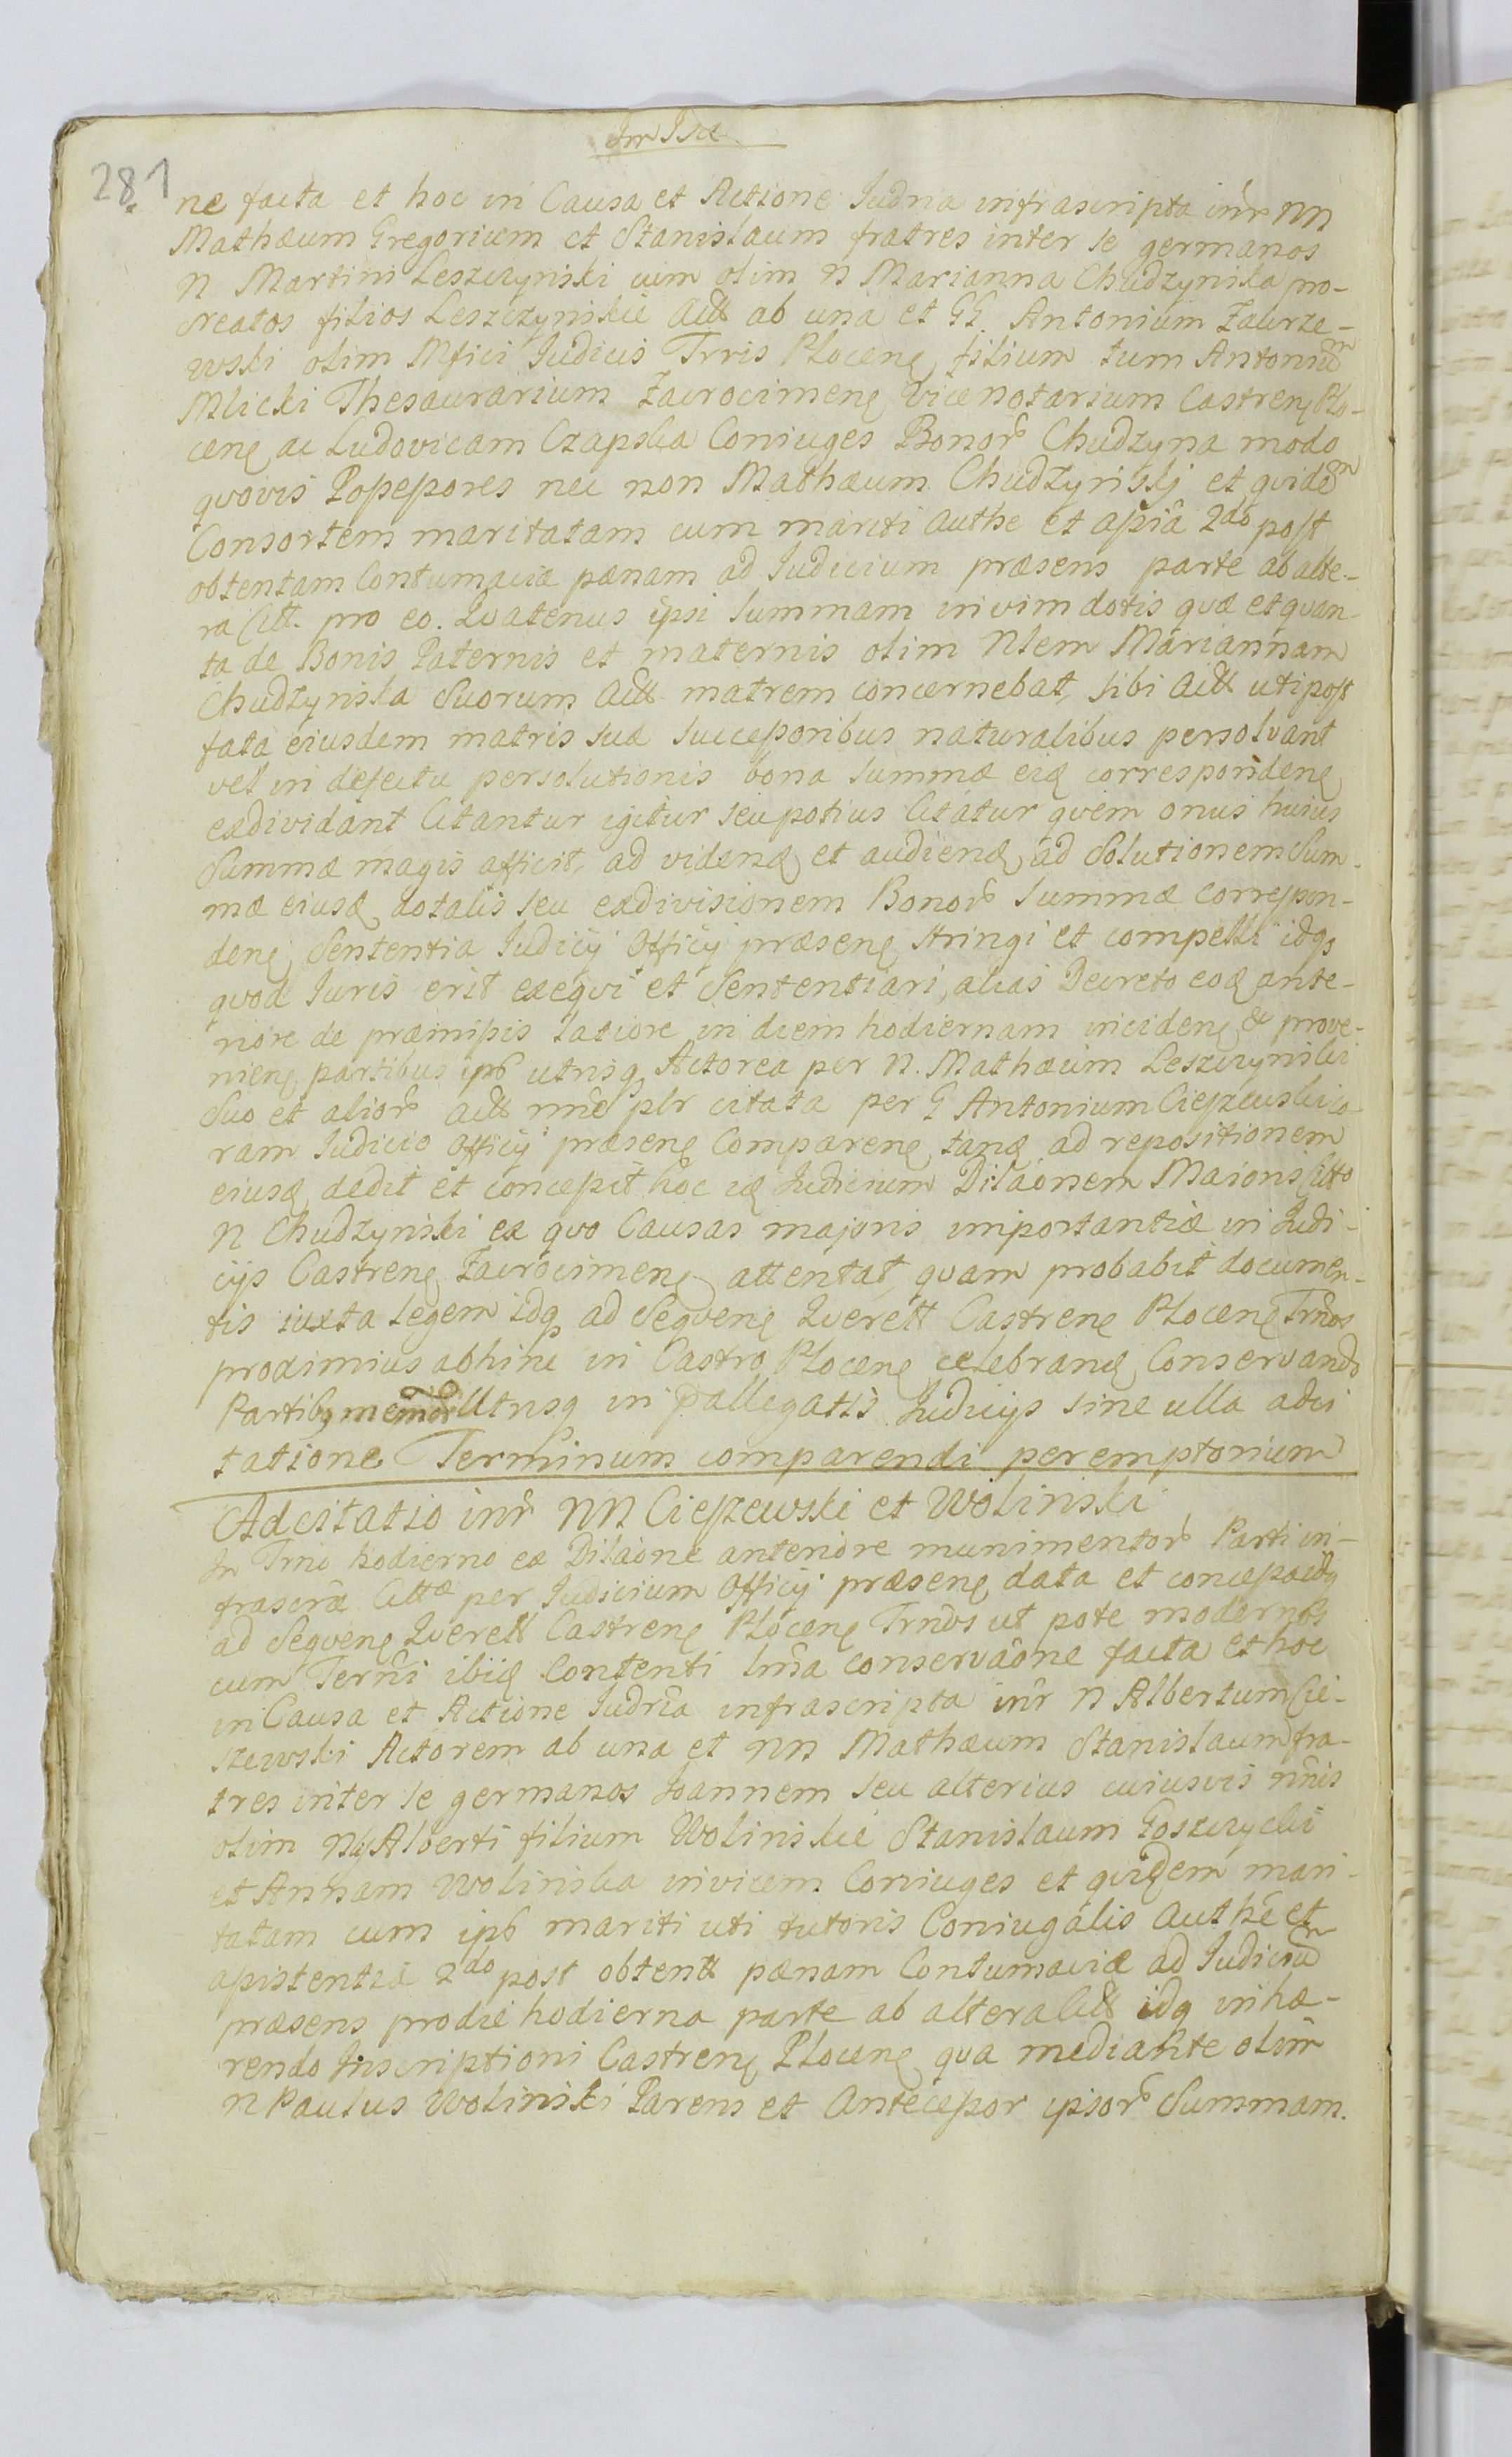 281
ne facta et hoc in Causa et Actione Iudria infrascripta inr NN
Mathæum Gregorium et Stanislaum fratres inter se germanos
N Martini Leszczynski cum olim N Marianna Chudzynska pro-
creatos filios Leszczynskie Actt ab una et GG. Antonium Zakrze-
wski olim Mfici Iudicis Trris Plocen filium tum Antonium
Mlicki Thesaurarium Zacrocimen Vicenotarium Castren Plo-
cen ac Ludovicam Czapska Coniuges Bonor Chudzyna modo
quovis Possessores nec non Mathæum Chudzynskj et quidem
Consortem maritatam cum mariti authe et assia 2do post
obtentam Contumaciæ pænam ad Iudicium præsens parte ab alte-
ra Citt. pro eo. Quatenus ipsi Summam in vim dotis quæ et quan-
ta de Bonis Paternis et maternis olim Nlem Mariannam
Chudzynska Suorum Actt matrem concernebat, sibi Actt uti post
fata eiusdem matris suæ successoribus naturalibus persolvant
vel in defectu persolutionis bona summæ eid corresponden
exdividant Citantur igitur seu potius Citatur quem onus huius
Summæ magis afficit, ad vidend et audiend ad Solutionem Sum-
mæ eiusd dotalis seu exdivisionem Bonor Summæ correspon-
den Sententia Iudicij Officij præsen stringi et compelli idq
quod Iuris erit exequi et Sententiari, alias Decreto eod ante-
riore de præmissis latiore in diem hodiernam inciden & prove-
nien partibus ipb utrisq Actorea per N. Mathæum Leszczynski
Suo et alior Actt nne plr citata per G Antonium Cieszewski co-
ram Iudicio Officij præsen Comparen tand ad repositionem
eiusd dedit et concessit hoc id Iudicium Dilaonem Maioris Citto
N Chudzynski ex quo Causas majoris importantiæ in Iudi-
cijs Castren Zacrocimen attentat, quam probabit documen-
tis iuxta legem idq ad Sequen Querett Castren Plocen Trmos
proximius abhinc in Castro Plocen celebrand Conservando
Partibq memor Utrisq in pallegatis Iudicijs sine ulla adci
tatione Terminum comparendi peremptorium
Adcitatio inr NN Cieszewski et Wolinski
In Trno hodierno ex Dilaone anteriore munimentor Parti in-
frascra Cittæ per Iudicium Officij præsen data et concessa idq
ad Sequen Querett Castren Plocen Trmos ut pote modernos
cum Termi ibid Contenti lma conservaone facta et hoc
in Causa et Actione Iudria infrascripta inr N Albertum Cie-
szewski Actorem ab una et NN Mathæum Stanislaum fra-
tres inter se germanos Joannem seu alterius cuiusvis nnis
olim N Alberti filium Wolinskie Stanislaum Goszczycki
et Annam Wolinska invicem Coniuges et quidem mari-
tatam cum ipb mariti uti tutoris Coniugalis authe et
assistentia 2do post obtentt pænam Contumaciæ ad Iudicium
præsens prodie hodierna parte ab altera Citt idq inhæ-
rendo Inscriptioni Castren Plocen qua mediante olim
N Paulus Wolinski Parens et Antecessor ipsor Summam.